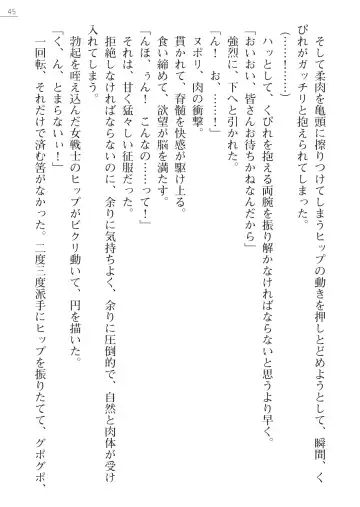 45
そして柔肉を亀頭に擦りつけてしまうヒップの動きを押しとどめようとして、瞬間、く
びれがガッチリと抱えられてしまった。
(……！……)
ハッとして、くびれを抱える両腕を振り解かなければならないと思うより早く。
「おいおい、皆さんお待ちかねなんだから」
強烈に、下へと引かれた。
「ん！　お、……！」
ヌボリ、肉の衝撃。
貫かれて、脊髄を快感が駆け上る。
食い締めて、欲望が脳を満たす。
「んほ、ぅん！　こんなの……って！」
それは、甘く猛々しい征服だった。
拒絶しなければならないのに、余りに気持ちよく、余りに圧倒的で、自然と肉体が受け
入れてしまう。
勃起を咥え込んだ女戦士のヒップがビクリ動いて、円を描いた。
「く、ん、とまらないぃ！」
一回転、それだけで済む筈がなかった。二度三度派手にヒップを振りたてて、グポグポ、